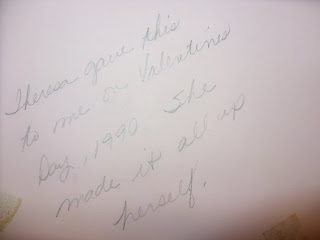 Theresa gave this
to me on Valentines
Day, 1990. She
made it all up
herself.